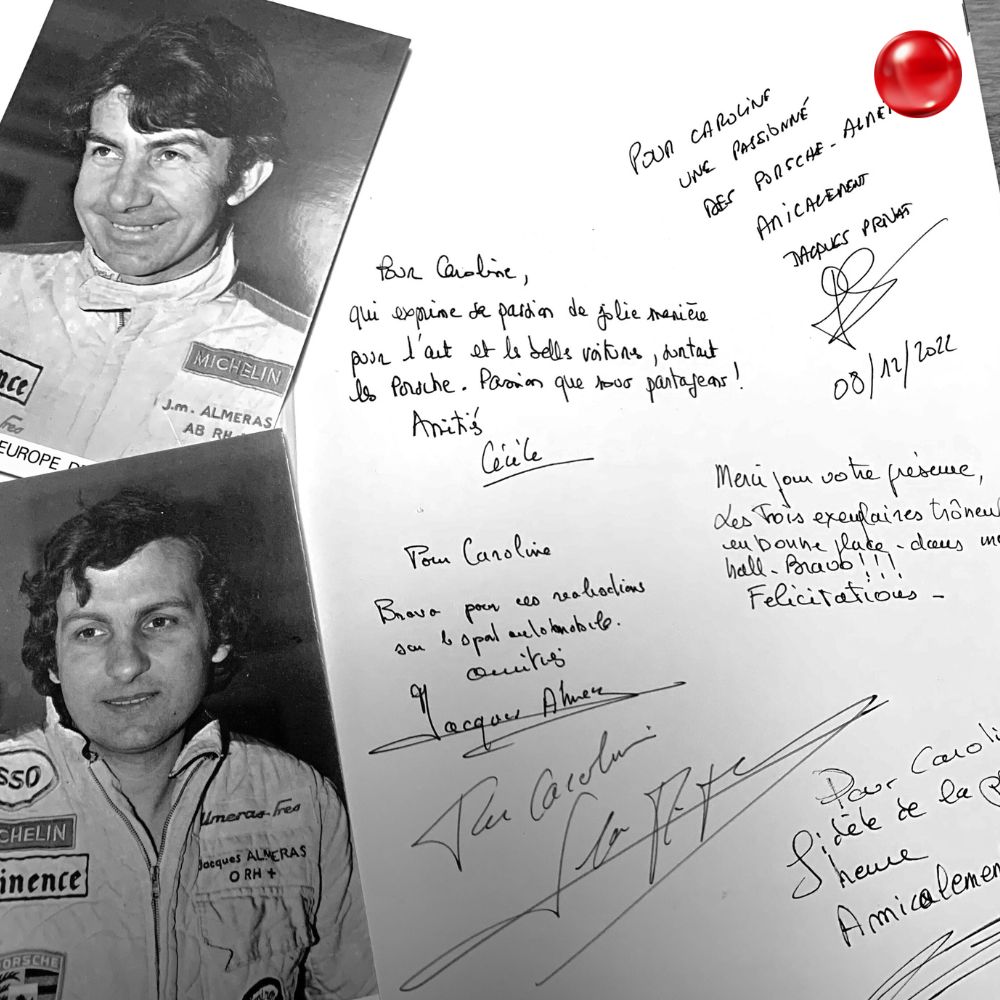 MICHELIN
J.m. ALMERAS
AB RH
EUROPE
POUR CAROLINE
UNE PASSIONNÉ
DES PORSCHE - ALME
AMICALEMENT
JACQUES PRIVAT
08/12/2022
Pour Caroline,
qui exprime sa passion de jolie manière
pour l'art et les belles voitures, surtout
les Porsche. Passion que nous partageons !
Amitiés
Cécile
Merci pour votre présence,
Les trois exemplaires trônent
en bonne place - dans mo
hall - Bravo !!!
Felicitations -
Pour Caroline
Bravo pour ces realisations
sur le sport automobile.
amitiés
Jacques Almeras
Pour Caroline
Pour Caroli
fidèle de la
heure
Amicalemen
SSO
CHELIN
inence
Almeras Fres
Jacques ALMERAS
O RH +
PORSCHE